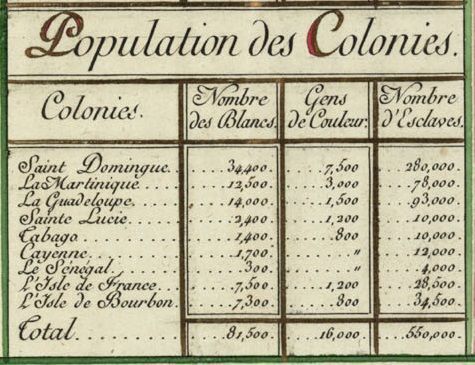 Population des Colonies.
Colonies. Nombre des Blancs. Gens de Couleur. Nombre d'Esclaves.
Saint Domingue... 34,400. 7,500 280,000.
La Martinique... 12,500. 3,000 78,000.
La Guadeloupe... 14,000. 1,500 93,000.
Sainte Lucie... 2,400. 1,200 10,000.
Tabago... 1,400. 800 10,000.
Cayenne... 1,700. " 12,000.
Le Sénégal... 300. " 4,000.
L'Isle de France... 7,500. 1,200 28,500.
L'Isle de Bourbon... 7,300. 800 34,500.
Total... 81,500. 16,000. 550,000.